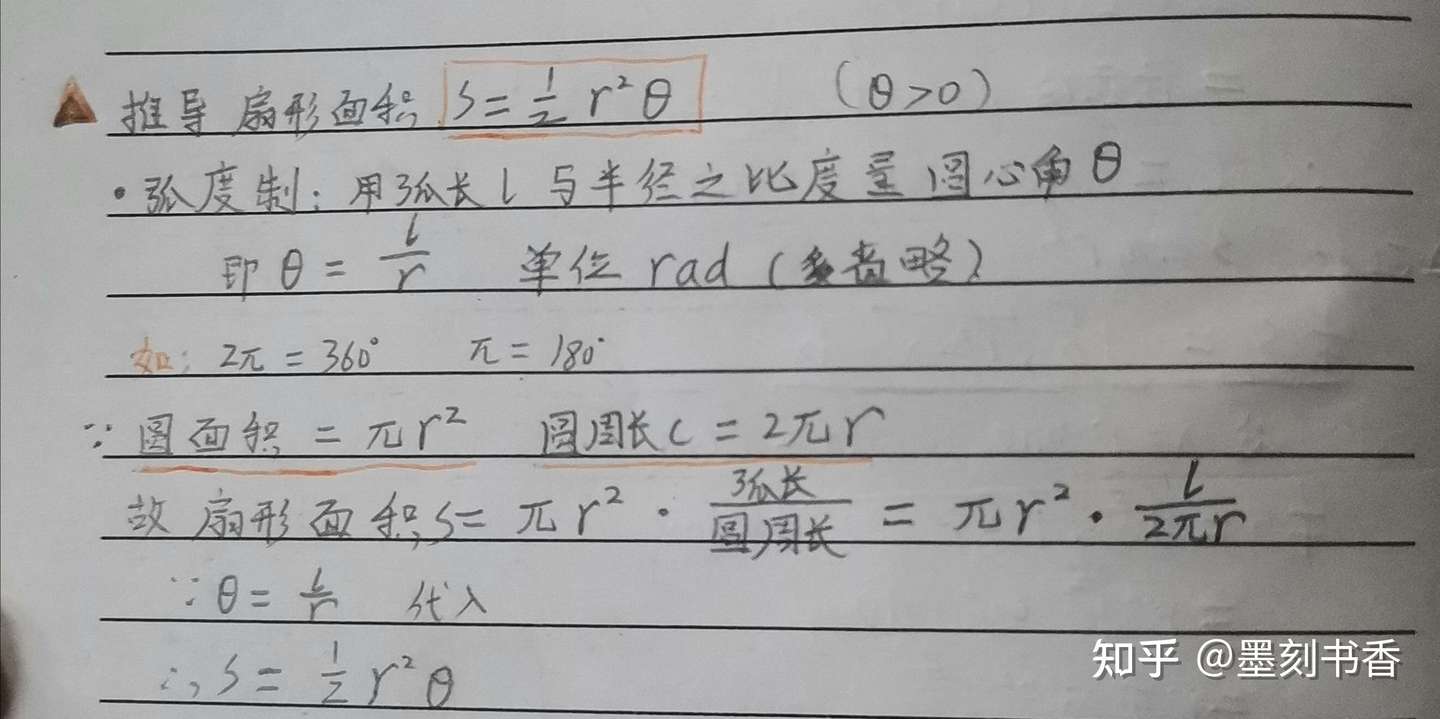 推导 扇形面积 S = 1/2 r²θ (θ>0)
·弧度制：用弧长l与半径之比度量圆心角θ
即θ = l/r 单位 rad (多省略)
如：2π = 360° π = 180°
∵ 圆面积 = πr² 圆周长C = 2πr
故 扇形面积,S = πr² · 弧长/圆周长 = πr² · l/2πr
∵ θ = l/r 代入
∴, S = 1/2 r²θ
知乎 @墨刻书香